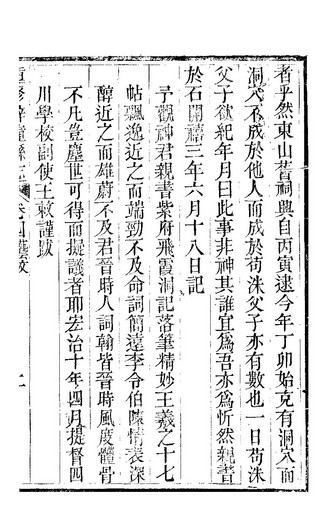 者乎然東山舊祠興自丙寅逮今年丁卯始克有洞穴而
洞穴不成於他人而成於苟洙父子亦有數也一日苟洙
父子欲紀年月曰此事非神其誰宜爲吾亦爲忻然親書
於石開禧三年六月十八日記
予觀神君親書紫府飛霞洞記落筆精妙王羲之十七
帖飄逸近之而端勁不及命詞簡遠李令伯陳情表深
醇近之而雄蔚不及君晉時人詞翰皆晉時風度體骨
不凡豈塵世可得而擬議者耶宏治十年四月提督四
川學校副使王敕謹跋
重修梓潼縣志 卷四藝文